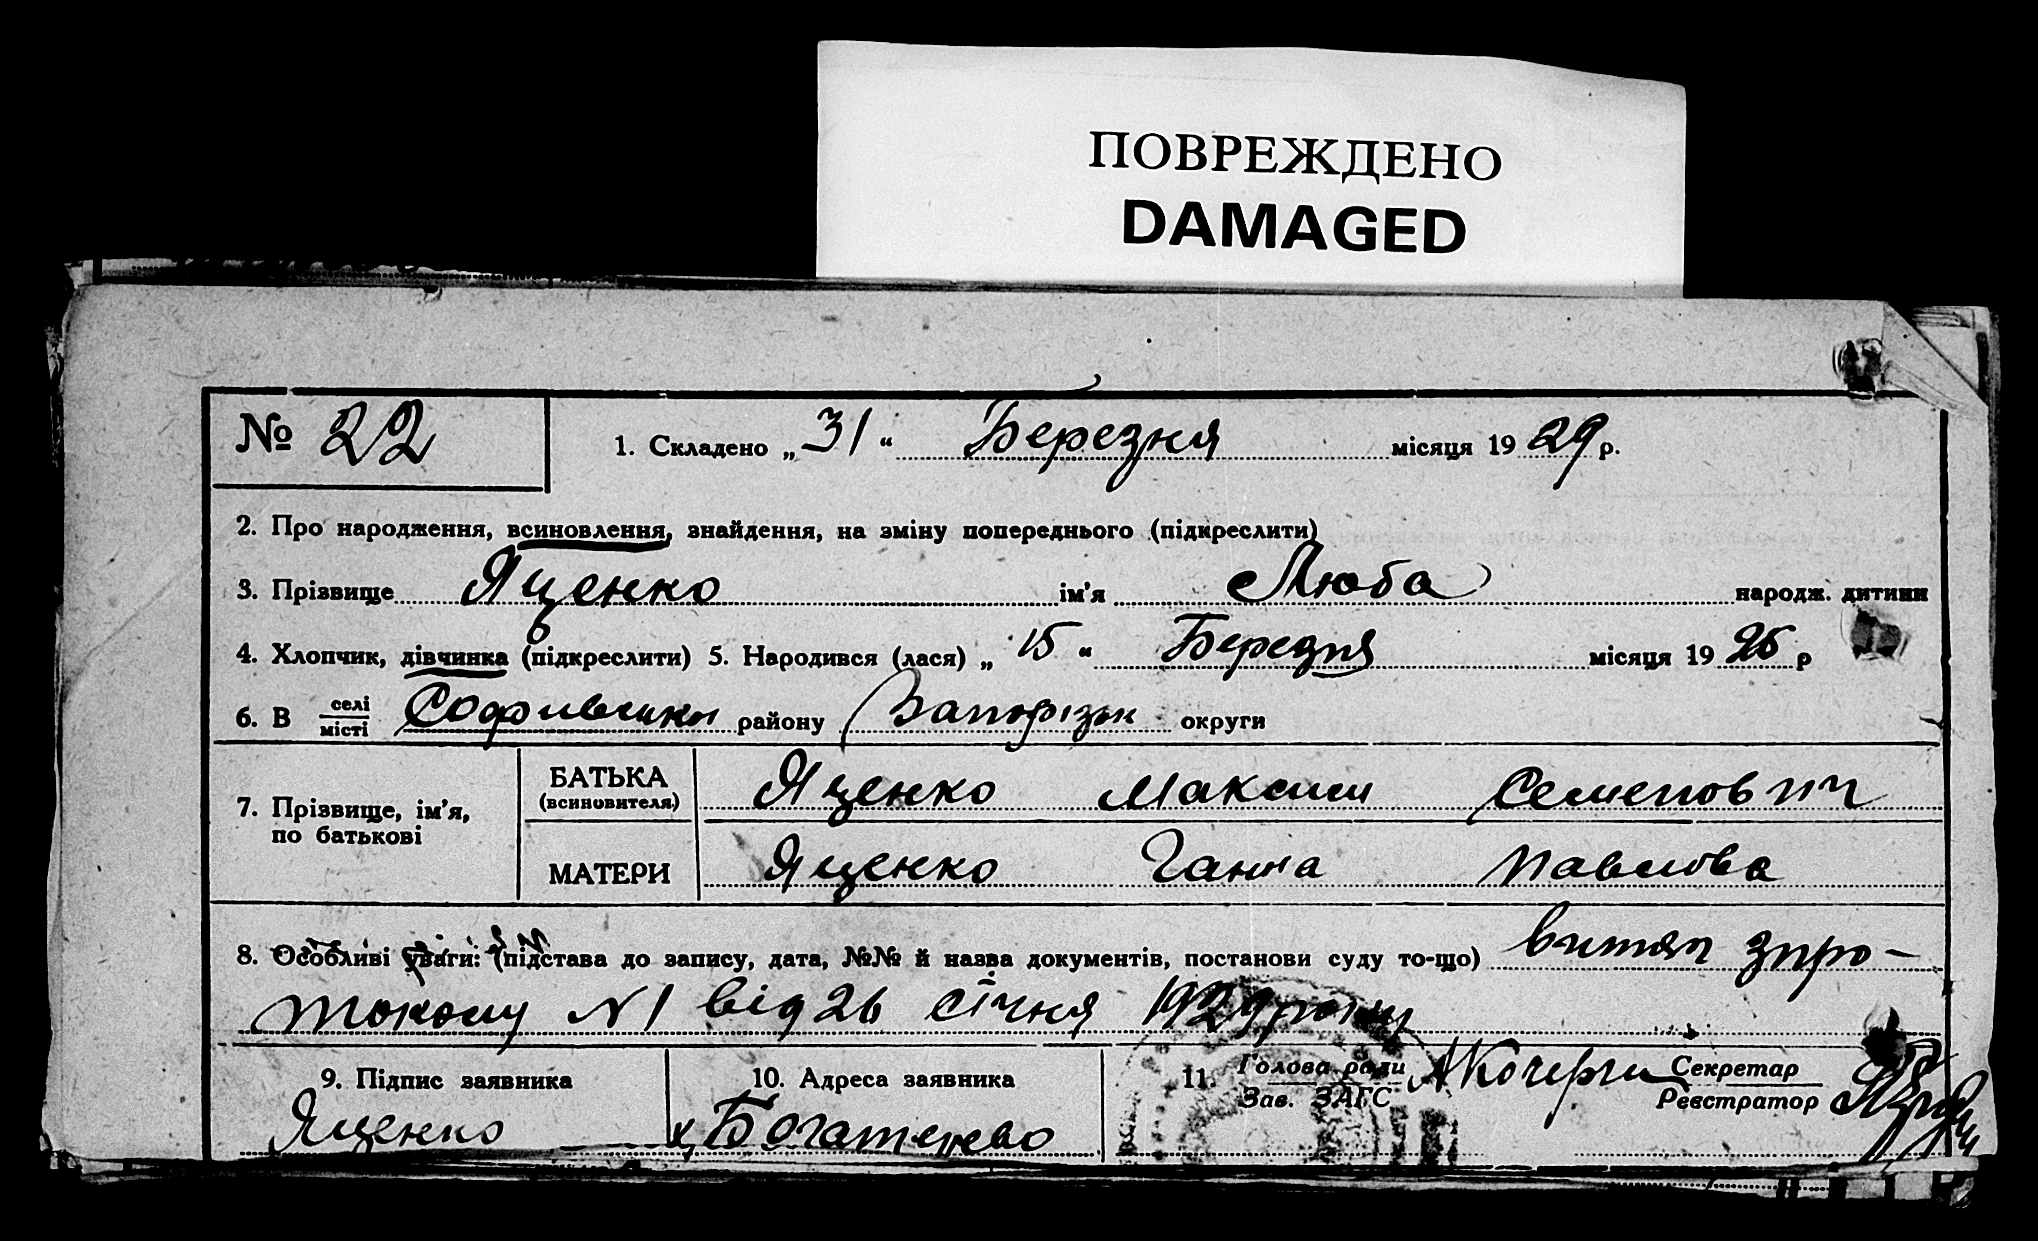 ПОВРЕЖДЕНО
DAMAGED
№ 22
1. Складено „ 31 “ Березня місяця 19 29 р.
2. Про народження, всиновлення, знайдення, на зміну попереднього (підкреслити)
3. Прізвище Яценко ім'я Люба народж. дитини
4. Хлопчик, дівчинка (підкреслити) 5. Народився (лася) „ 15 “ Березня місяця 19 25 р
6. В селі місті району Запорізьк округи
7. Прізвище, ім'я, по батькові
БАТЬКА (всиновителя) Яценко Максим Семенович
МАТЕРИ Яценко Ганна Павлова
8. Особливі уваги: (підстава до запису, дата, №№ й назва документів, постанови суду то-що) витяг зпро-
токолу N 1 від 26 січня 1929 року
9. Підпис заявника
Яценко
10. Адреса заявника
х Богатирево
11. Голова ради
Зав. ЗАГС
Секретар
Реєстратор